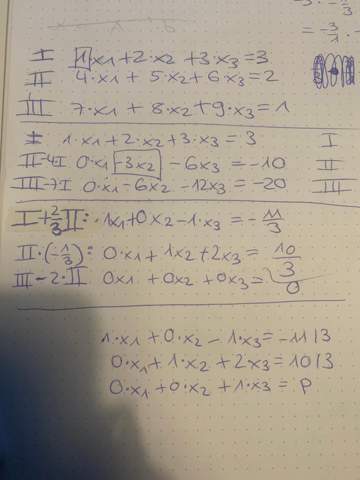 -3 · -2/3
= -3/1 · -
I 1·x1+2·x2 +3·x3=3
II 4·x1 + 5·x2+6·x3=2
III 7·x1 + 8·x2+9·x3=1
I 1·x1+2·x2+3·x3= 3 I
II-4I 0·x1 -3x2 -6x3 = -10 II
III-7I 0·x1-6x2 -12x3=-20 III
I+2/3II: 1x1+0x2-1·x3=-11/3
II·(-1/3): 0·x1+1x2+2x3= 10/3
III-2·II 0x1 +0x2 +0x3= 0
1·x1+0·x2 - 1·x3=-11/3
0·x1+1·x2 + 2·x3=10/3
0·x1+0·x2 +1·x3= p